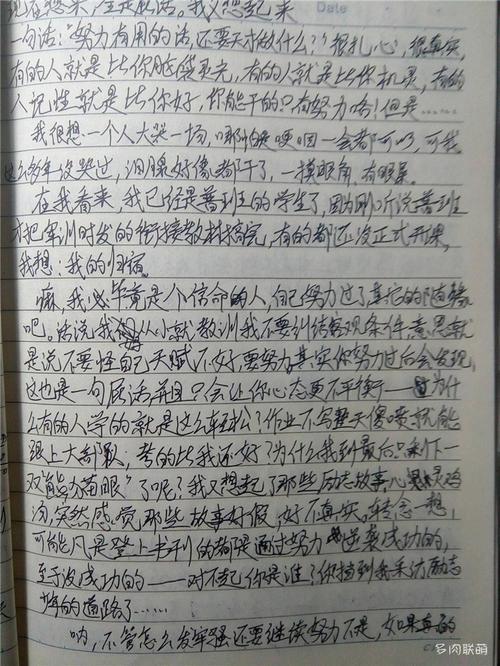 现在想来,全是屁话。我又想起来
Date
一句话:“努力有用的话,还要天才做什么?”很扎心,很真实,
有的人就是比你脑袋灵光,有的人就是比你机灵,有的
人记性就是比你好,你能干的只有努力啥!但是……
我很想一个人大哭一场,哪怕是哽咽一会都可以,可我
这么多年没哭过,泪腺好像都干了,一摸眼角,有眼屎。
在我看来,我已经是普班的学生了,因为刚听说普班
才把军训时发的衔接教材搞完,有的都还没正式开课,
我想:我的归宿。
嘛,我毕竟是个信命的人,自己努力过了其它的随缘
吧。话说我从小就教训我不要纠结客观条件,意思就
是说不要怪自己天赋不好,要努力其实你努力过后会发现,
这也是一句屁话并且只会让你心态更不平衡——为什
么有的人学的就是这么轻松?作业不写整天傻喷就能
跟上大部队,考的比我还好?为什么我到最后只剩下一
双“能力苗眼”了呢?我又想起了那些励志故事,心灵鸡
汤,突然感觉那些故事好假,好不真实。转念一想,
可能凡是登上书刊的都是通过努力逆袭成功的,
至于没成功的——对不起你是谁?你挡到我采访励志
少年的道路了……
呐,不管怎么发牢骚还要继续努力不是,如果真的
多肉联萌